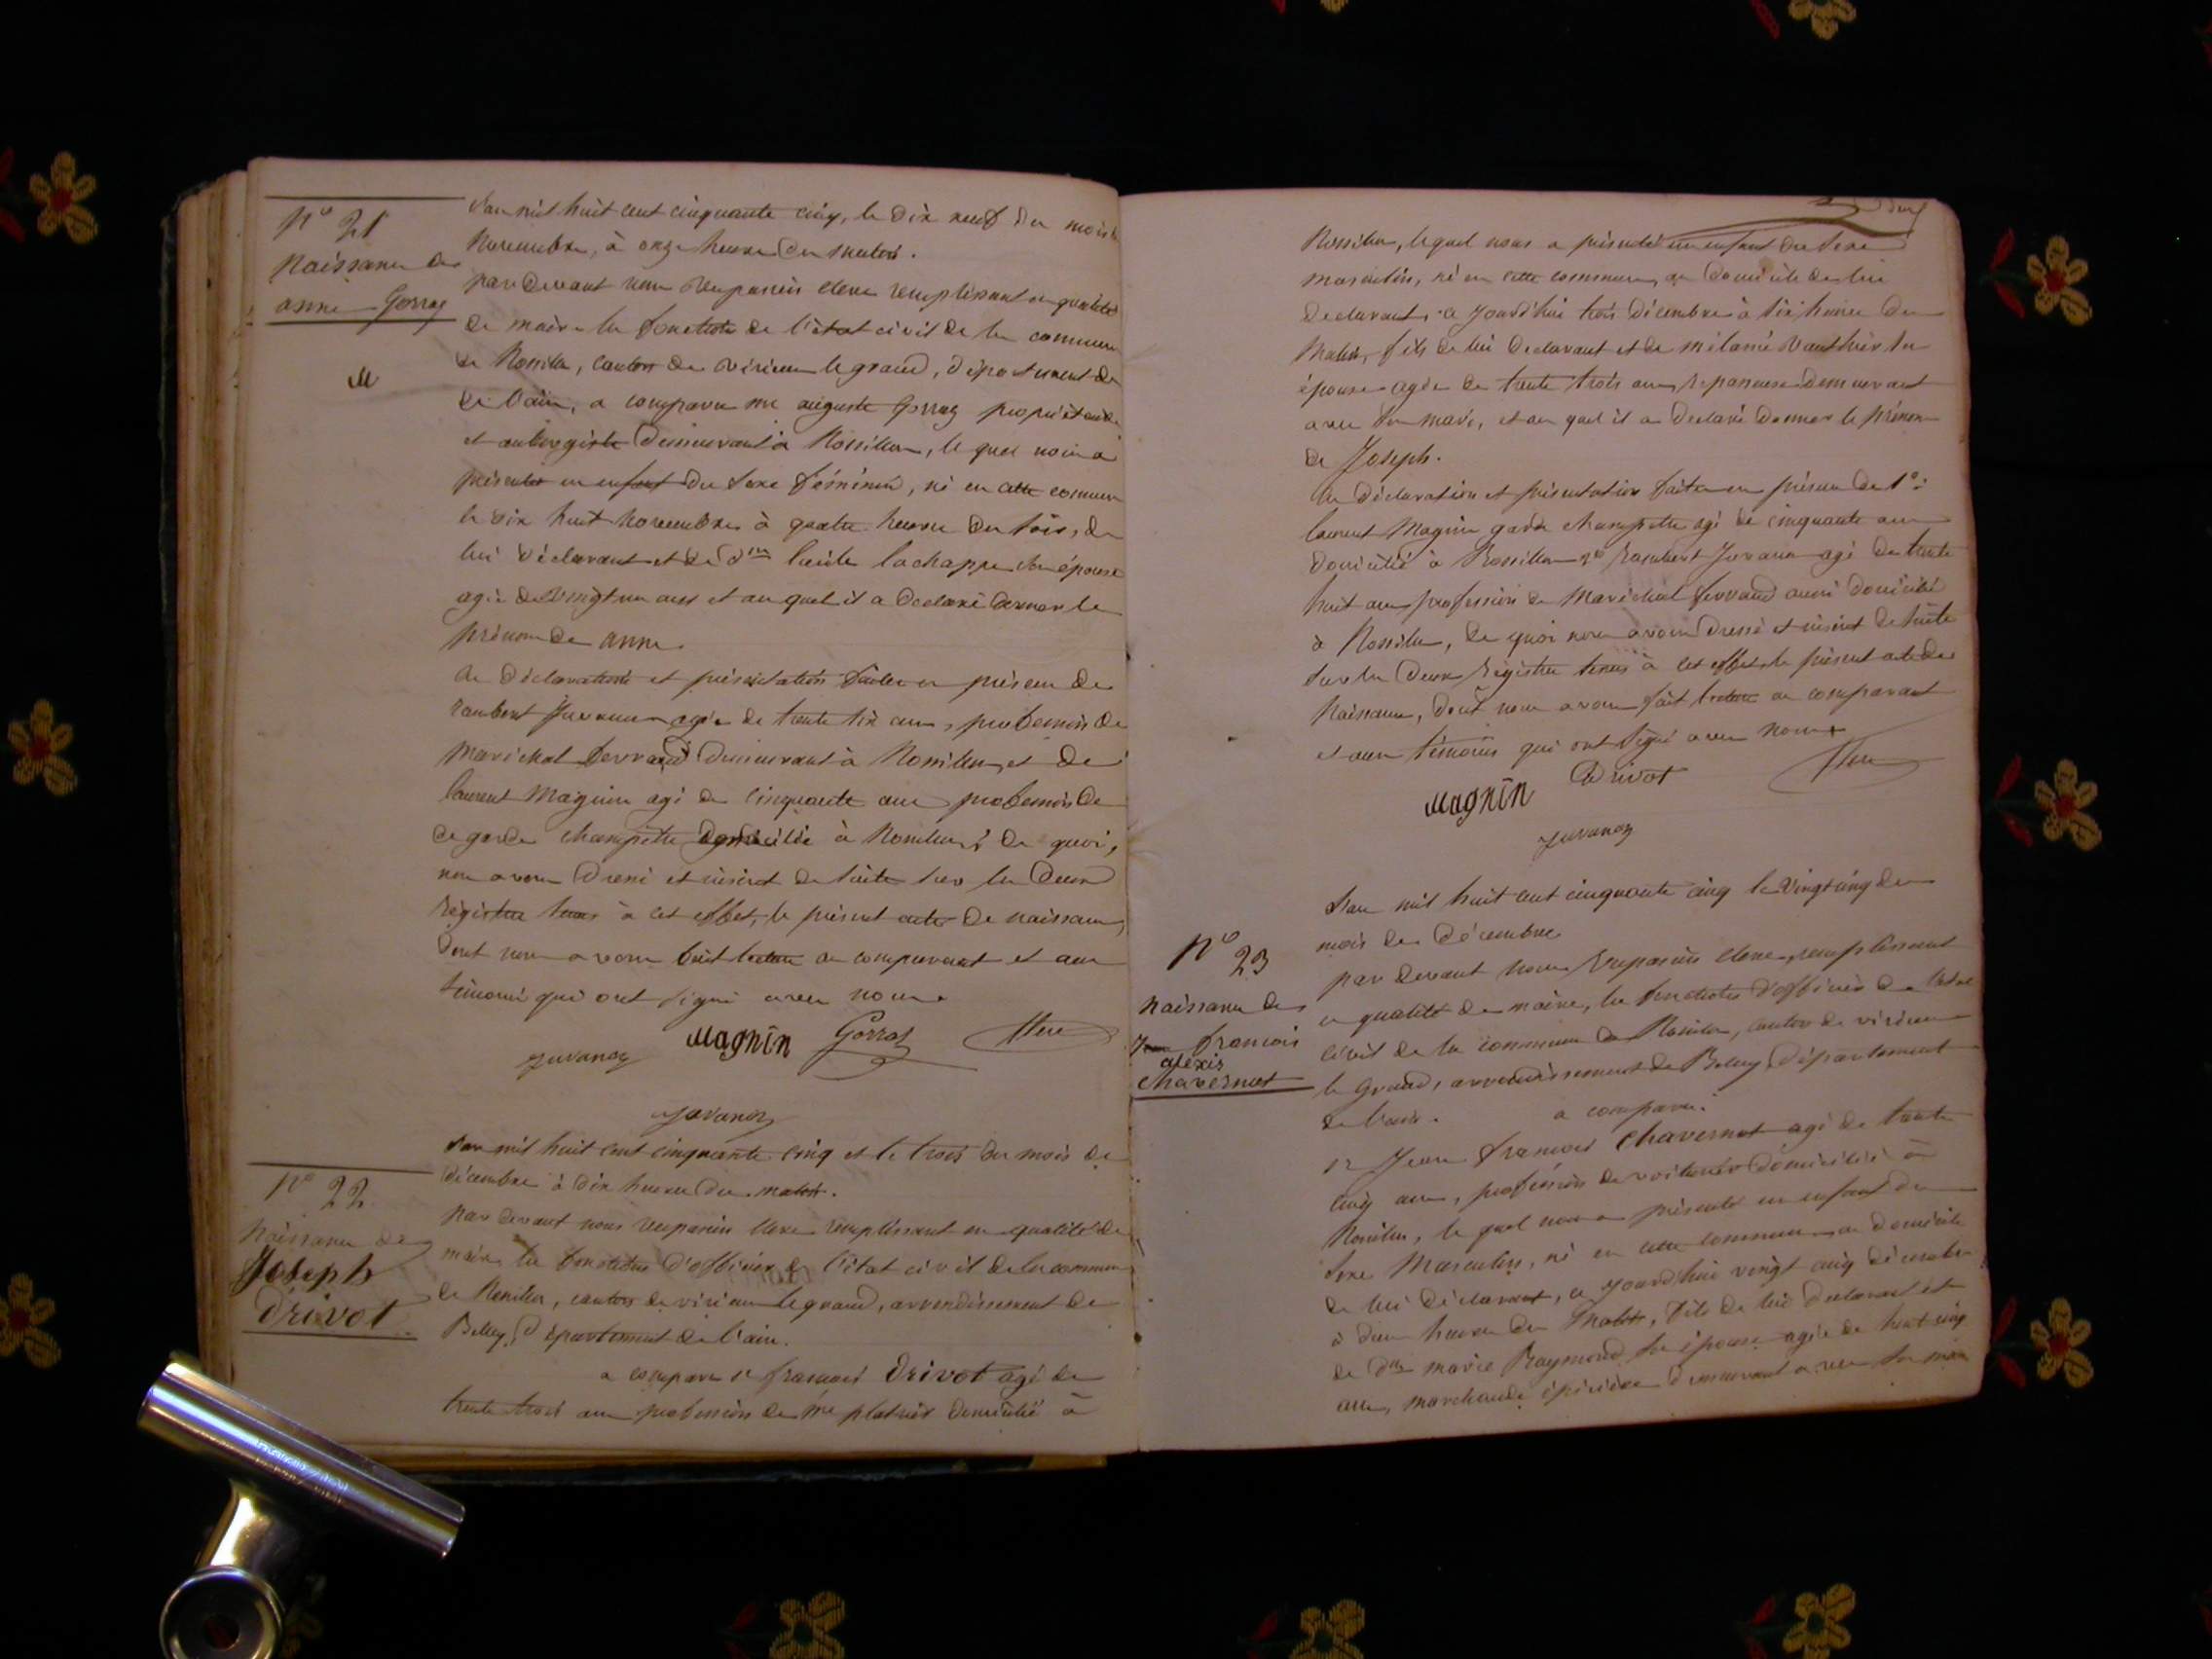 N° 21
Naissance de
anne Gorraz
L'an mil huit cent cinquante cinq, le dix neuf du mois de
Novembre, à onze heures du matin.
par devant nous Verpasien clerc remplissant en qualité
de maire les fonctions de l'état civil de la commune
de Rossillon, canton de virieu le grand, département de
de l'ain, a comparu mr auguste Gorraz propriétaire
et aubergiste demeurant à Rossillon, le quel nous a
présenté un enfant du sexe féminin, né en cette commune
le dix huit novembre à quatre heures du soir, de
lui déclarant et de dme lachappe son épouse
agée de vingt un ans et au quel il a déclaré donner le
prénom de anne.
la déclaration et présentation faites en présence de
rambert Juvanon agé de trente six ans, profession de
maréchal ferrand demeurant à Rossillon, et de
laurent Magnin agé de cinquante ans profession de
de garde champêtre domicilié à Rossillon, de quoi,
nous avons dressé et inscrit de suite sur les deux
régistres tenus à cet effet, le présent acte de naissance,
dont nous avons fait lecture au comparant et aux
témoins qui ont signé avec nous.
Juvanon Magnin Gorraz
Juvanon
N° 22
Naissance de
Joseph
Drivot
L'an mil huit cent cinquante cinq et le trois du mois de
décembre à dix heures du matin.
par devant nous Verpasien clerc remplissant en qualité de
maire les fonctions d'officier de l'état civil de la commune
de Rossillon, canton de virieu le grand, arrondissement de
Belley, département de l'ain.
a comparu sr françois Drivot agé de
trente trois ans profession de me platrier domicilié à
Rossillon, lequel nous a présenté un enfant du sexe
masculin, né en cette commune, au domicile de lui
déclarant, ce jourd'hui trois décembre à six heures du
matin, fils de lui déclarant et de mélanie son
épouse agée de trente trois ans, demeurant
avec son mari, et au quel il a déclaré donner le prénom
de Joseph.
la déclaration et présentation faites en présence de 1°:
laurent Magnin garde champêtre agé de cinquante ans
domicilié à Rossillon 2° rambert Juvanon agé de trente
huit ans profession de maréchal ferrand aussi domicilié
à Rossillon, de quoi nous avons dressé et inscrit de suite
sur les deux régistres tenus à cet effet, le présent acte de
Naissance, dont nous avons fait lecture au comparant
et aux témoins qui ont signé avec nous
Magnin Drivot
Juvanon
N° 23
Naissance de
françois
alexis
Chavernot
L'an mil huit cent cinquante cinq le vingt cinq du
mois de décembre
par devant nous Verpasien clerc, remplissant
en qualité de maire, les fonctions d'officier de l'état
civil de la commune de Rossillon, canton de virieu
le Grand, arrondissement de Belley, département
de l'ain. a comparu.
sr Jean françois Chavernot agé de trente
cinq ans, profession de voiturier domicilié à
Rossillon, le quel nous a présenté un enfant du
sexe Masculin, né en cette commune au domicile
de lui déclarant, ce jourd'hui vingt cinq décembre
à deux heures du Matin, fils de lui déclarant et
de dme marie Raymond son épouse agée de trente cinq
ans, marchande épicière demeurant avec son mari